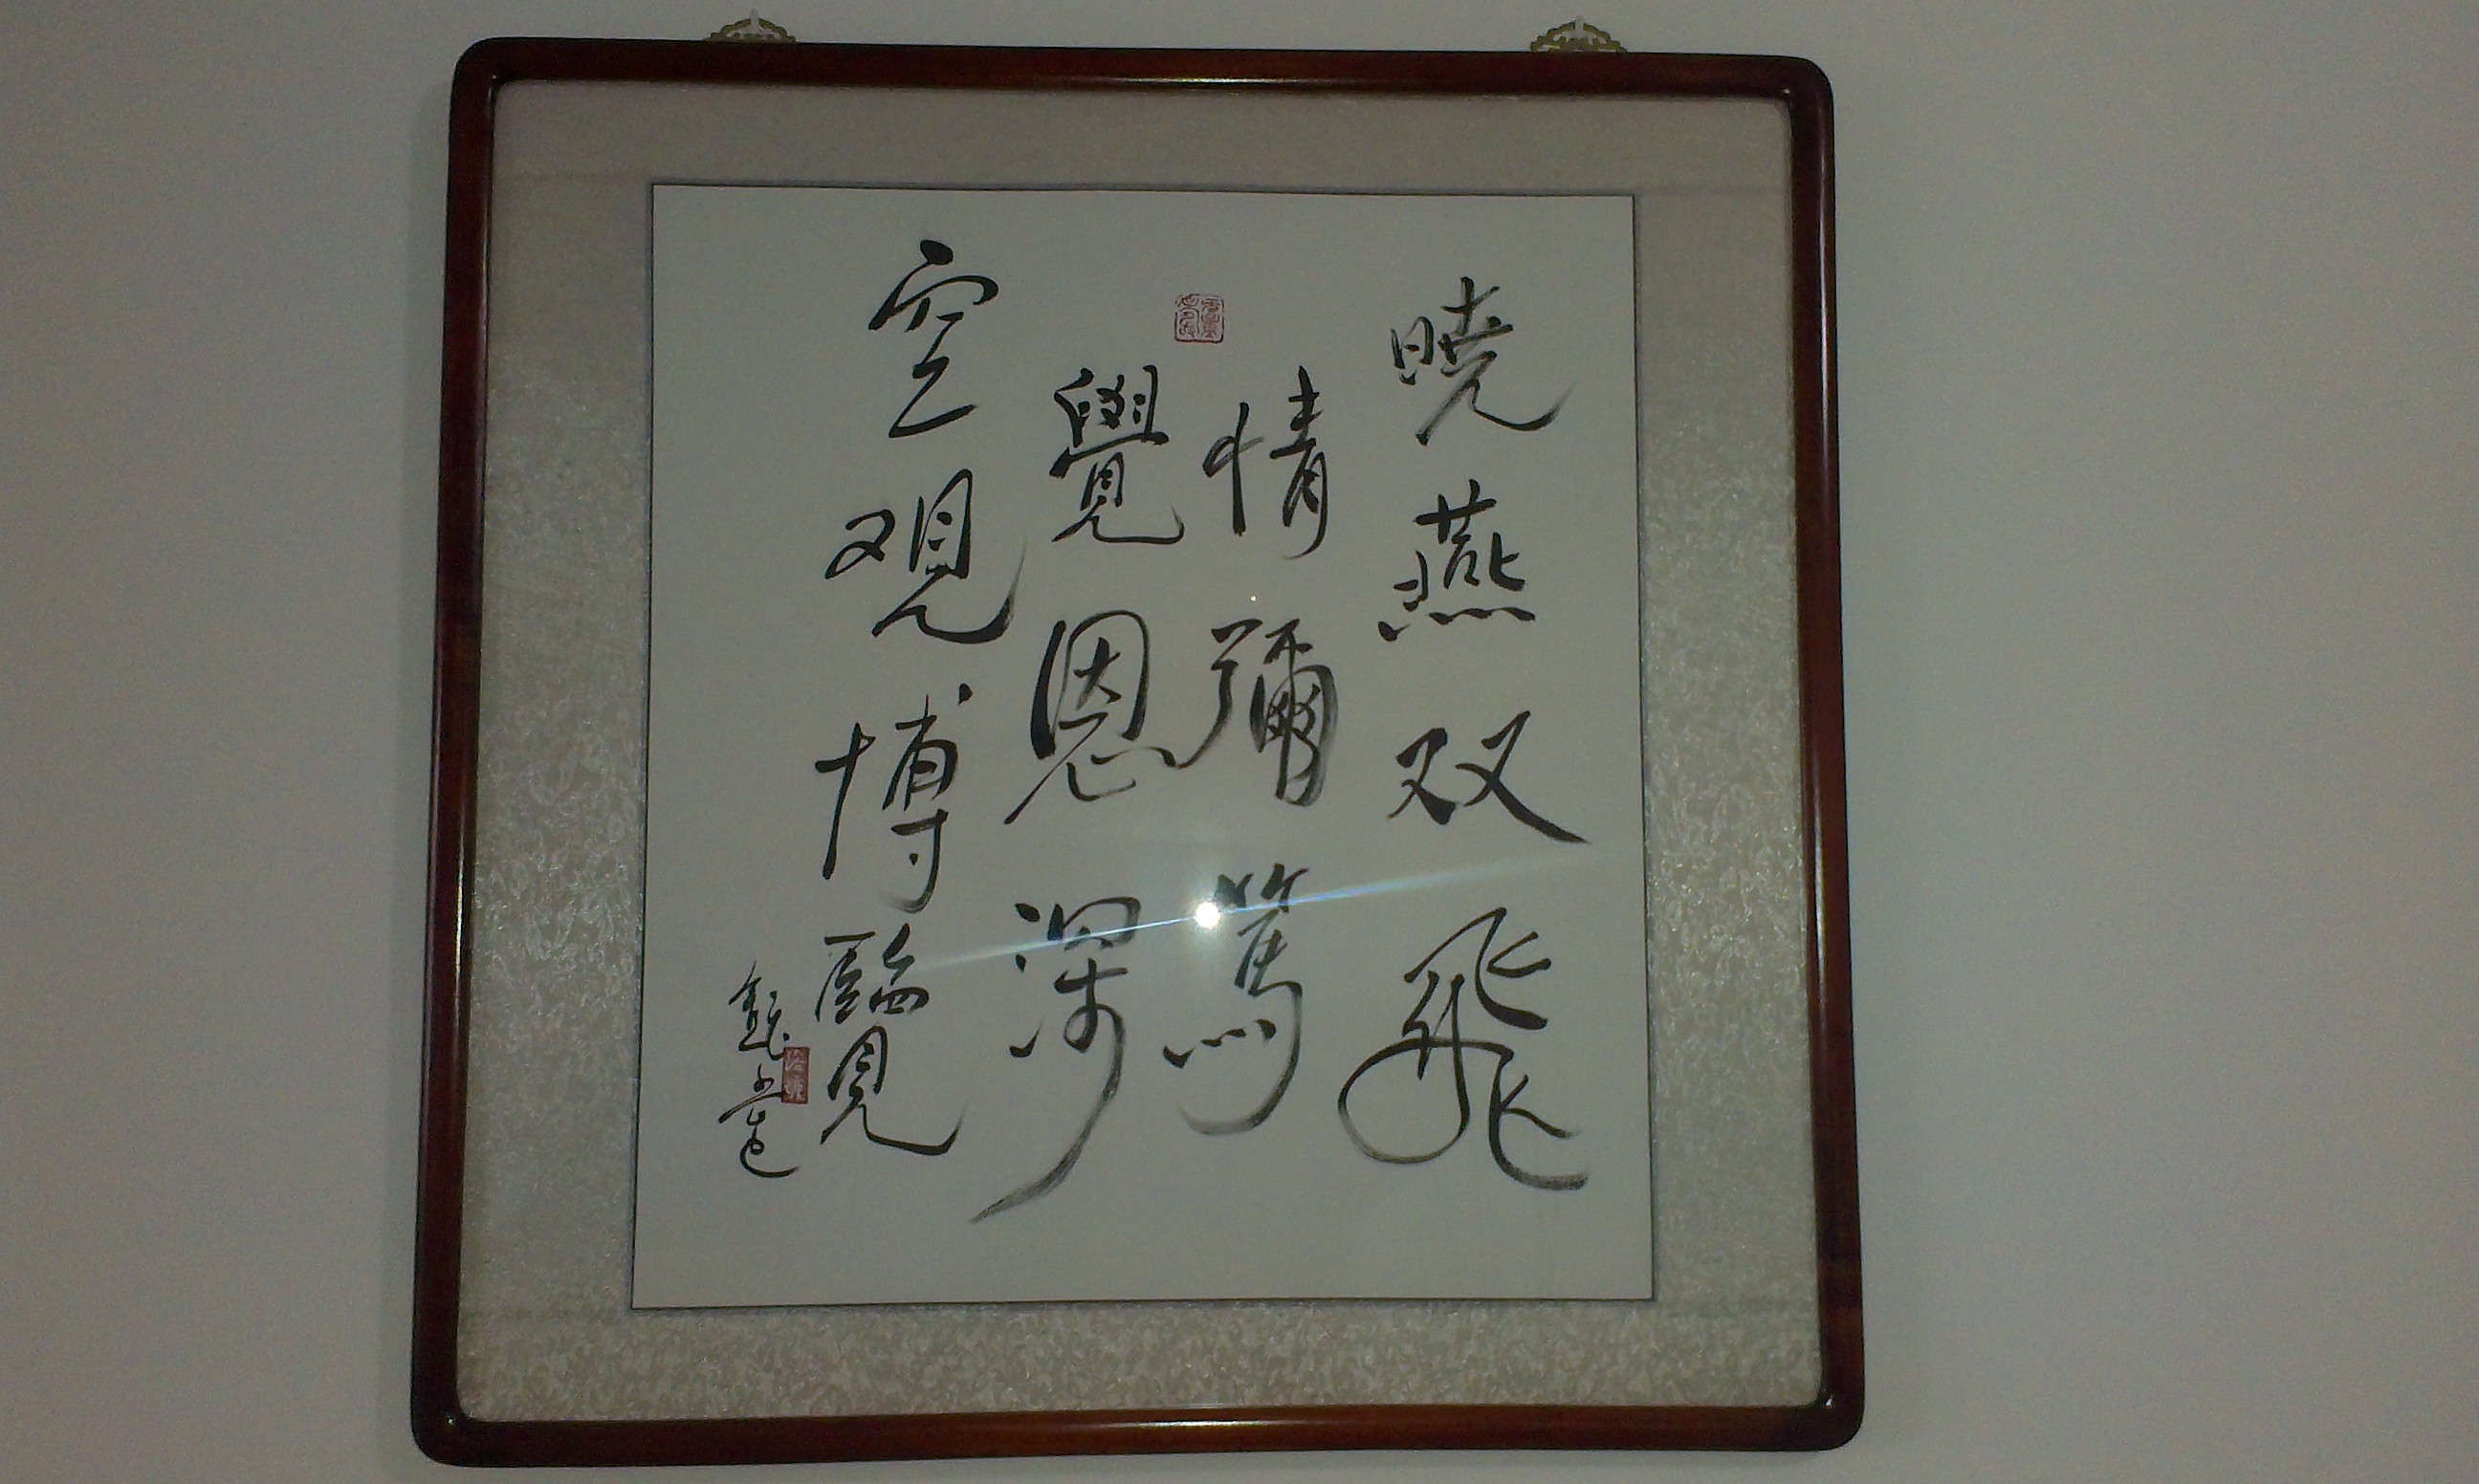 暁燕双飛
情彌篤
覺恩深
空观博覽